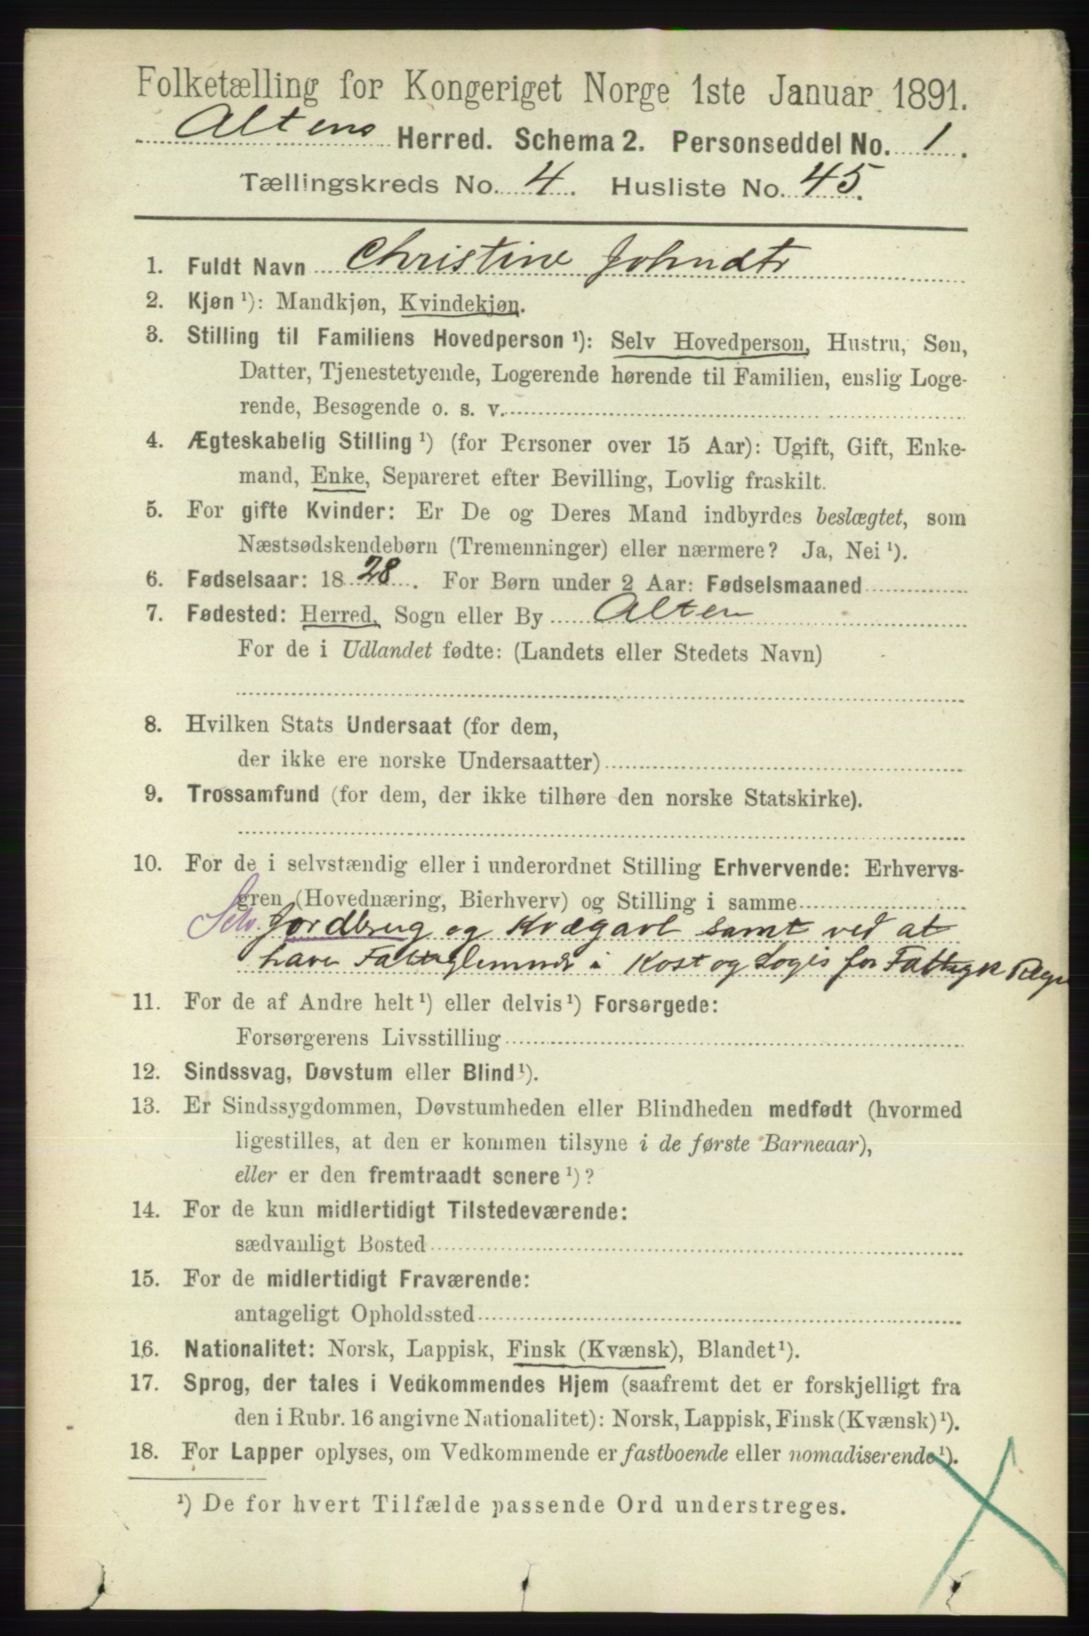 Folketælling for Kongeriget Norge 1ste Januar 1891.
Altens Herred. Schema 2. Personseddel No. 1.
Tællingskreds No. 4. Husliste No. 45.
1. Fuldt Navn Christine Johndtr
2. Kjøn ¹): Mandkjøn, Kvindekjøn.
3. Stilling til Familiens Hovedperson ¹): Selv Hovedperson, Hustru, Søn,
Datter, Tjenestetyende, Logerende hørende til Familien, enslig Loge-
rende, Besøgende o. s. v.
4. Ægteskabelig Stilling ¹) (for Personer over 15 Aar): Ugift, Gift, Enke-
mand, Enke, Separeret efter Bevilling, Lovlig fraskilt.
5. For gifte Kvinder: Er De og Deres Mand indbyrdes beslægtet, som
Næstsødskendebørn (Tremenninger) eller nærmere? Ja, Nei ¹).
6. Fødselsaar: 1828. For Børn under 2 Aar: Fødselsmaaned
7. Fødested: Herred, Sogn eller By Alten
For de i Udlandet fødte: (Landets eller Stedets Navn)
8. Hvilken Stats Undersaat (for dem,
der ikke ere norske Undersaatter)
9. Trossamfund (for dem, der ikke tilhøre den norske Statskirke).
10. For de i selvstændig eller i underordnet Stilling Erhvervende: Erhvervs-
gren (Hovednæring, Bierhverv) og Stilling i samme
Selv. Jordbrug og Kvægavl samt ved at
have i Kost og Logis for
11. For de af Andre helt ¹) eller delvis ¹) Forsørgede:
Forsørgerens Livsstilling
12. Sindssvag, Døvstum eller Blind ¹).
13. Er Sindssygdommen, Døvstumheden eller Blindheden medfødt (hvormed
ligestilles, at den er kommen tilsyne i de første Barneaar),
eller er den fremtraadt senere ¹)?
14. For de kun midlertidigt Tilstedeværende:
sædvanligt Bosted
15. For de midlertidigt Fraværende:
antageligt Opholdssted
16. Nationalitet: Norsk, Lappisk, Finsk (Kvænsk), Blandet ¹).
17. Sprog, der tales i Vedkommendes Hjem (saafremt det er forskjelligt fra
den i Rubr. 16 angivne Nationalitet): Norsk, Lappisk, Finsk (Kvænsk) ¹).
18. For Lapper oplyses, om Vedkommende er fastboende eller nomadiserende ¹).
¹) De for hvert Tilfælde passende Ord understreges.